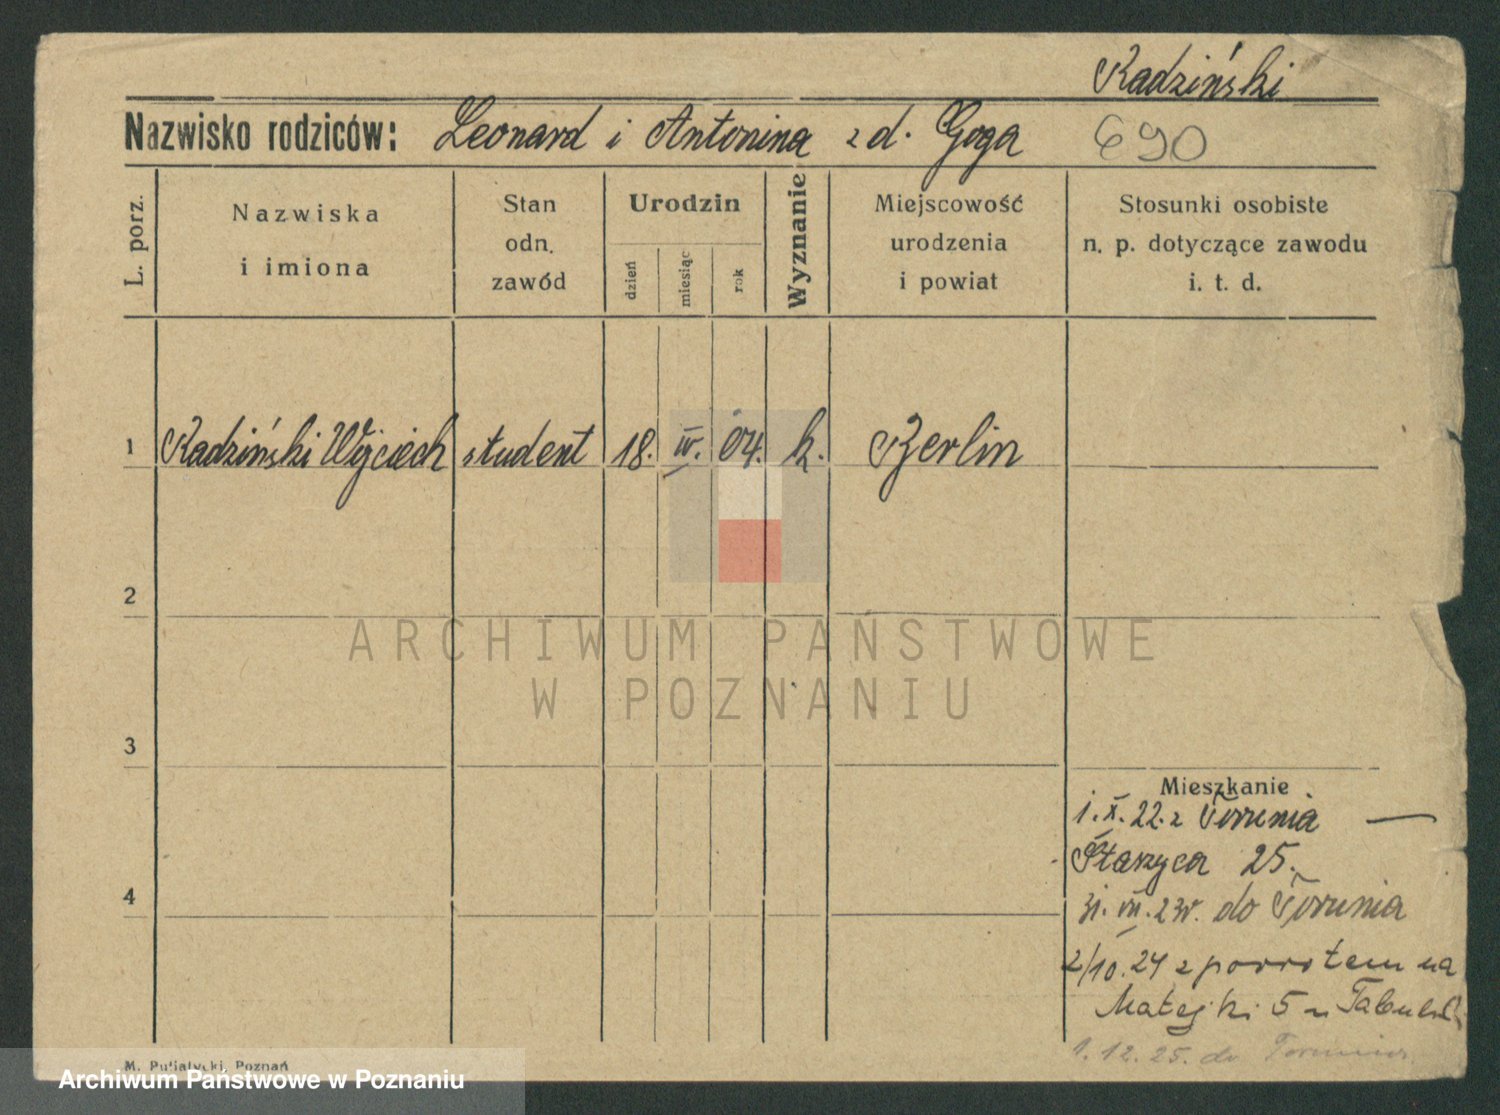 Radziński
Nazwisko rodziców: Leonard i Antonina z d. Goga 690
L. porz.
Nazwiska
i imiona
Stan
odn.
zawód
Urodzin
dzień
miesiąc
rok
Wyznanie
Miejscowość
urodzenia
i powiat
Stosunki osobiste
n. p. dotyczące zawodu
i. t. d.
1 Radziński Wojciech student 18. IV. 04. k. Berlin
2
3
4
Mieszkanie
1. X. 22. z Torunia —
Staszyca 25.
31. VII. 23 r. do Torunia
2/10. 24 z powrotem na
Matejki 5 u
1. 12. 25. do Torunia
M. Putiatycki, Poznań
ARCHIWUM PAŃSTWOWE
W POZNANIU
Archiwum Państwowe w Poznaniu